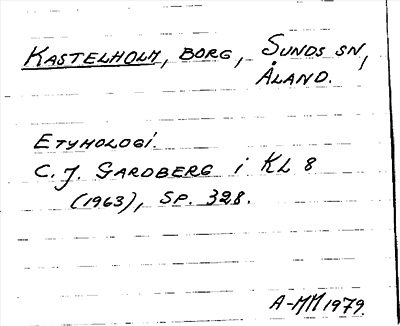 KASTELHOLM, BORG, SUNDS SN,
ÅLAND.
ETYMOLOGI.
C. J. GARDBERG i KL 8
(1963), SP. 328.
A-MM 1979.